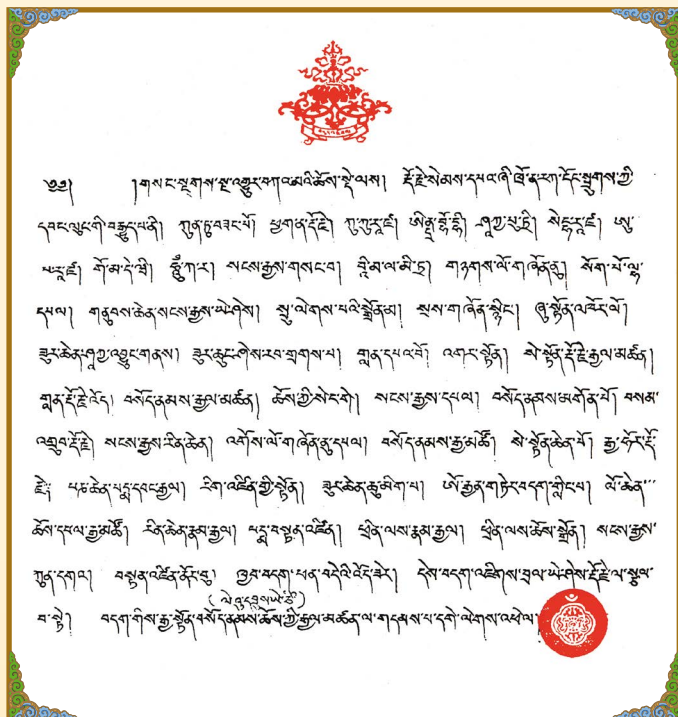 ༧༧། །གསང་སྔགས་སྔ་འགྱུར་བཀའ་མའི་ཆོས་སྡེ་ལས། རྡོ་རྗེ་སེམས་དཔའ་ཞི་ཁྲོ་ན་རག་དོང་སྤྲུགས་ཀྱི་
དབང་ལུང་གི་བརྒྱུད་པ་ནི། ཀུན་ཏུ་བཟང་པོ། ཕྱག་ན་རྡོ་རྗེ། ཀུ་ཀུ་རཱ་ཛ། ཨིནྡྲ་བྷོ་དྷི། ཤཱཀྱ་པུ་ཏྲི། སེངྷ་རཱ་ཛ། ཨུ་
པ་རཱ་ཛ། གོ་མ་དེ་ཝི། ཧཱུྃ་ཀ་ར། སངས་རྒྱས་གསང་བ། བྷི་མ་ལ་མི་ཏྲ། གཉགས་ལོ་གཞོན་ནུ། སོག་པོ་ལྷ་
དཔལ། གནུབས་ཆེན་སངས་རྒྱས་ཡེ་ཤེས། སྲུ་ལེགས་པའི་སྒྲོན་མ། སྲས་གཞོན་སྙིང། ཞུ་སྟོན་འཁོར་ལོ།
ཟུར་ཆེན་ཤཱཀྱ་འབྱུང་གནས། ཟུར་ཆུང་ཤེས་རབ་གྲགས་པ། གླན་དཔའ་བོ། འགར་སྟོན། སེ་སྟོན་རྡོ་རྗེ་རྒྱལ་མཚན།
གླན་རྡོ་རྗེ་འོད། བསོད་ནམས་རྒྱལ་མཚན། ཆོས་ཀྱི་སེང་གེ། སངས་རྒྱས་དཔལ། བསོད་ནམས་མགོན་པོ། བསམ་
འགྲུབ་རྡོ་རྗེ། སངས་རྒྱས་རིན་ཆེན། འགོས་ལོ་གཞོན་ནུ་དཔལ། བསོད་ནམས་རྒྱ་མཚོ། སེ་སྟོན་ཆེན་པོ། རྒྱ་ཧོར་རྡོ་
རྗེ། པཎ་ཆེན་པདྨ་དབང་རྒྱལ། རིག་འཛིན་གྱི་སྟོན། ཟུར་ཆེན་ཆུ་མིག་པ། ཨོ་རྒྱན་གཏེར་བདག་གླིང་པ། ལོ་ཆེན་
ཆོས་དཔལ་རྒྱ་མཚོ། རིན་ཆེན་རྣམ་རྒྱལ། པདྨ་བསྟན་འཛིན། ཕྲིན་ལས་རྣམ་རྒྱལ། ཕྲིན་ལས་ཆོས་སྒྲོན། སངས་རྒྱས་
ཀུན་དགའ། བསྟན་འཛིན་ནོར་བུ། ཁྱབ་བདག་ཕན་བདེའི་འོད་ཟེར། དེས་བདག་འཇིགས་བྲལ་ཡེ་ཤེས་རྡོ་རྗེ་ལ་སྩལ་
བ་སྟེ། བདག་གིས་རྒྱ་སྟོན་བསོད་ནམས་ཆོས་ཀྱི་རྒྱལ་མཚན་ལ་གདམས་པ་དགེ་ལེགས་འཕེལ།